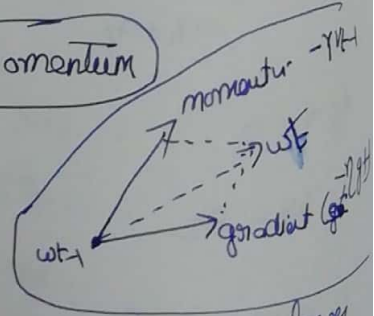 omentum
momentu -γVt-1
wt
-ηgt)
gradient (
wt-1